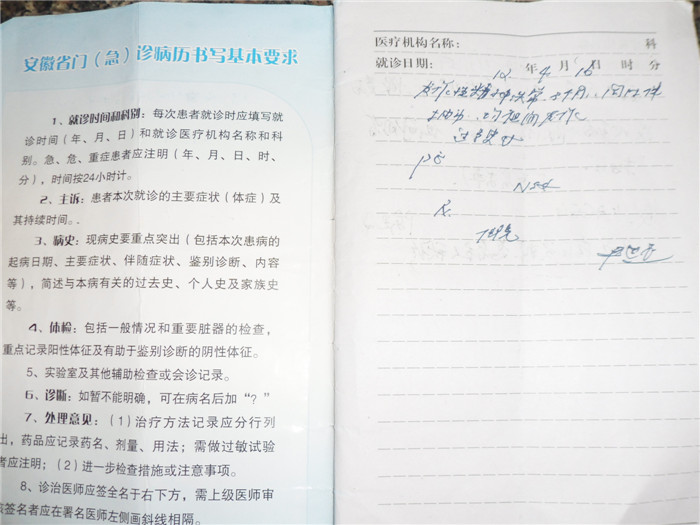 安徽省门（急）诊病历书写基本要求
1、就诊时间和科别：每次患者就诊时应填写就
诊时间（年、月、日）和就诊医疗机构名称和科
别。急、危、重症患者应注明（年、月、日、时、
分），时间按24小时计。
2、主诉：患者本次就诊的主要症状（体症）及
其持续时间。.
3、病史：现病史要重点突出（包括本次患病的
起病日期、主要症状、伴随症状、鉴别诊断、内容
等），简述与本病有关的过去史、个人史及家族史
等。
4、体检：包括一般情况和重要脏器的检查，
重点记录阳性体征及有助于鉴别诊断的阴性体征。
5、实验室及其他辅助检查或会诊记录。
6、诊断：如暂不能明确，可在病名后加“？”
7、处理意见：（1）治疗方法记录应分行列
出，药品应记录药名、剂量、用法；需做过敏试验
者应注明；（2）进一步检查措施或注意事项。
8、诊治医师应签全名于右下方，需上级医师审
签名者应在署名医师左侧画斜线相隔。
医疗机构名称： 科
就诊日期： 12 年 4 月 16 日 时 分
发作性
PE